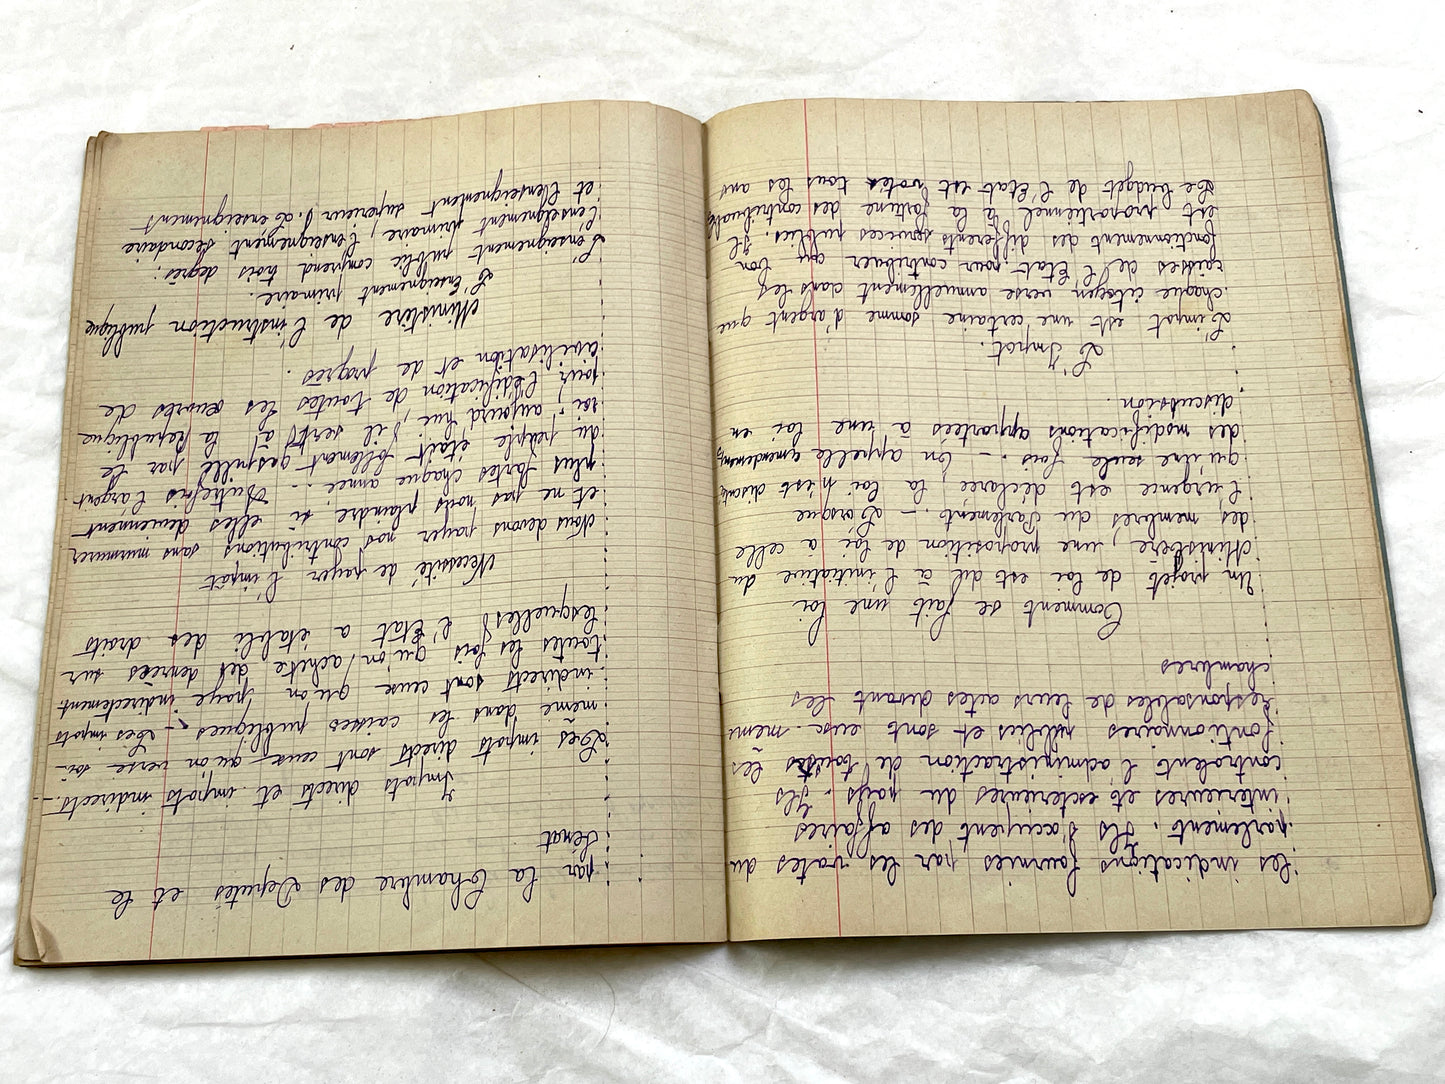 les indications fournies par les votes du
parlement. Ils s'occupent des affaires
interieures et exterieures du pays. Ils
controlent l'administraction de toutes les
fontionnaires publics et sont eux-même
responsables de leurs actes devant les
chambres
Comment se fait une loi
Un projet de loi est dit à l'initiative du
Ministère, une proposition de loi à celle
des membres du Parlement. - Lorsque
l'urgence est déclarée, la loi n'est discuté
qu'une seule fois. - On appelle amendements
des modifications apportées à une loi en
discussion.
L'Impot.
L'impot est une certaine somme d'argent que
chaque citoyen verse annuellement dans les
caisses de l'Etat pour contribuer au bon
fonctionnement des differents services publics. Il
est proportionnel à la fortune des contribuable
Le budget de l'Etat est votés tous les ans
par la Chambre des Deputés et le
Sénat
Impots directs et impots indirects.-
Les impots directs sont ceux qu'on verse soi-
même dans les caisses publiques - Les impots
indirects sont ceux qu'on paye indirectement
toutes les fois qu'on achète des denrées sur
lesquelles l'Etat a établi des droits
Necessité de payer l'impôt
Nous devons payer nos contributions sans murmurer
et ne pas nous plaindre si elles deviennent
plus fortes chaque année - Autrefois l'argent
du peuple était follement gaspillé par le
roi - aujourd'hui, il sert à la Republique
pour l'édification de toutes les œuvres de
civilisation et de progrès.
Ministère de l'instruction publique
L'Enseignement primaire.
L'enseignement public comprend trois degrés:
l'enseignement primaire, l'enseignement secondaire
et l'enseignement superieur 1. Le enseignement